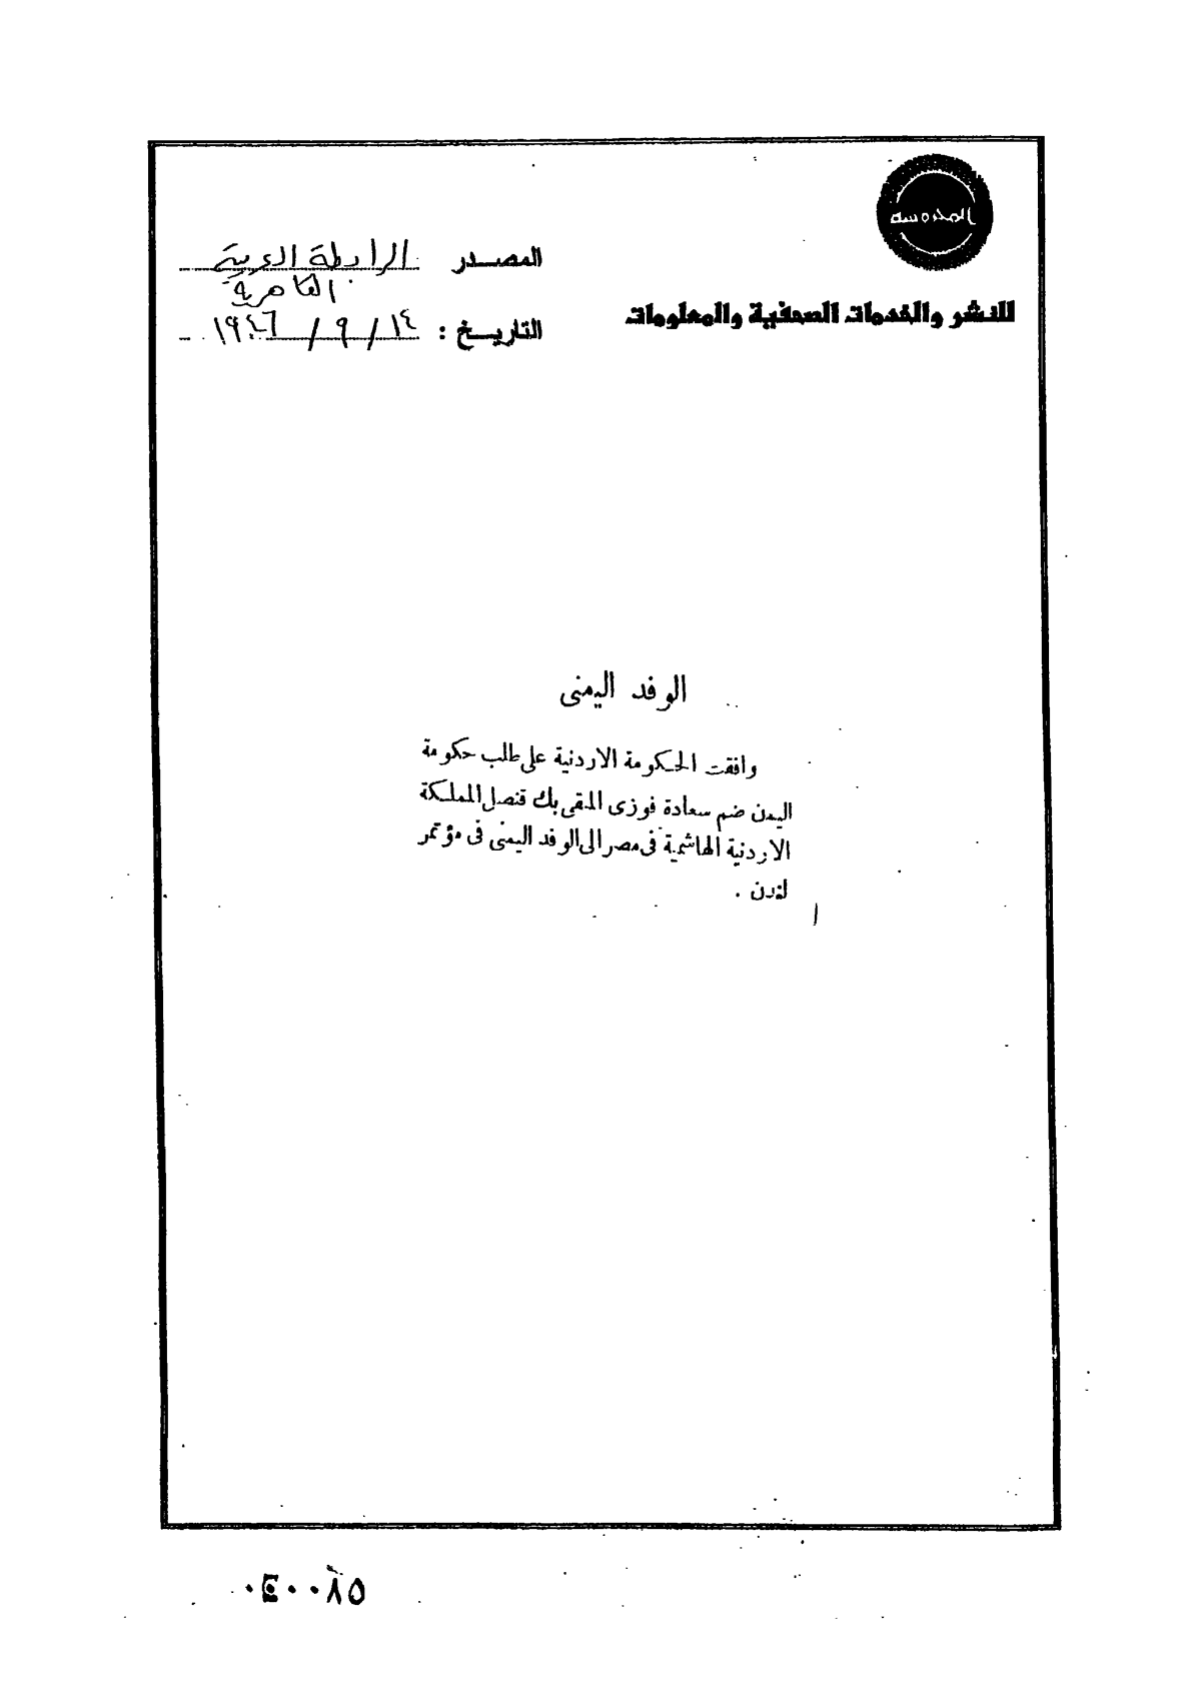 المحروسة
للنشر والخدمات الصحفية والمعلومات
المصدر الرابطة العربية
القاهرية
التاريخ : ١٤ / ٩ / ١٩٤٦
الوفد اليمنى
وافقت الحكومة الاردنية على طلب حكومة
اليمن ضم سعادة فوزى الملقى بك قنصل المملكة
الاردنية الهاشمية فى مصر الى الوفد اليمنى فى مؤتمر
لندن .
٠٤٠٠٨٥